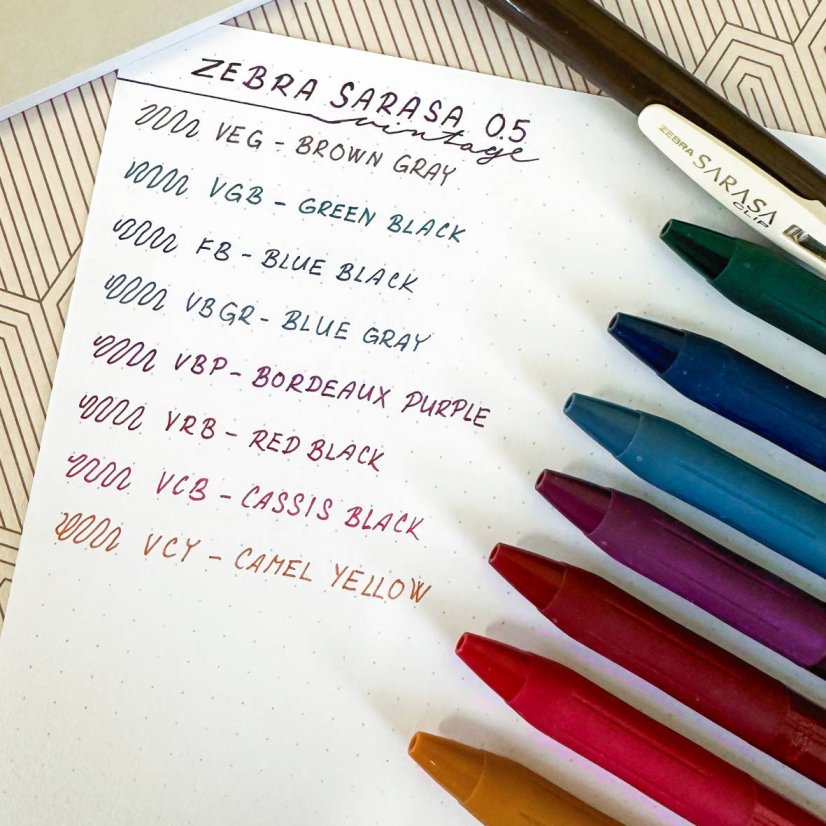 ZEBRA SARASA 0.5
vintage
VEG - BROWN GRAY
VGB - GREEN BLACK
FB - BLUE BLACK
VBGR - BLUE GRAY
VBP - BORDEAUX PURPLE
VRB - RED BLACK
VCB - CASSIS BLACK
VCY - CAMEL YELLOW
ZEBRA SARASA
CLIP